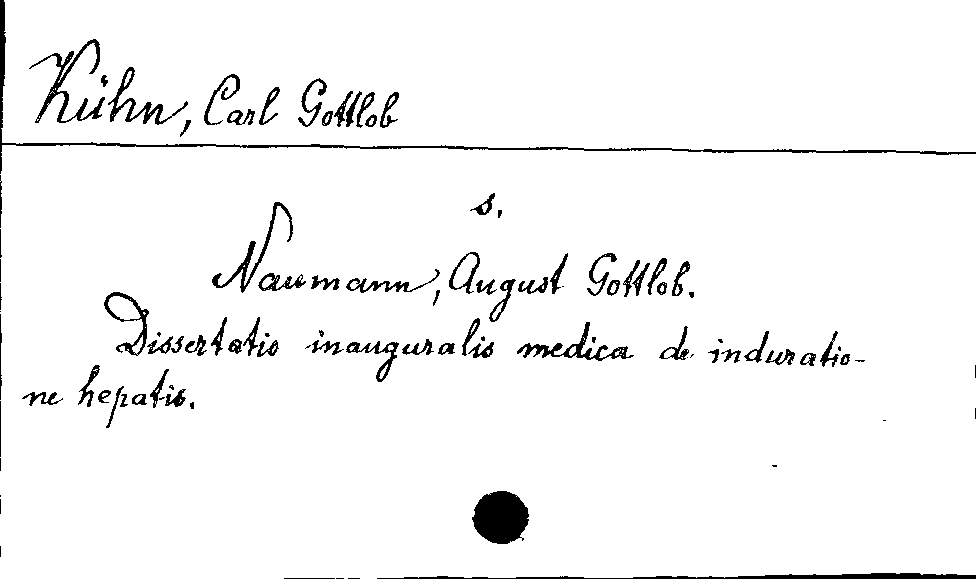 Kühn, Carl Gottlob
s.
Naumann, August Gottlob.
Dissertatio inauguralis medica de induratio-
ne hepatis.